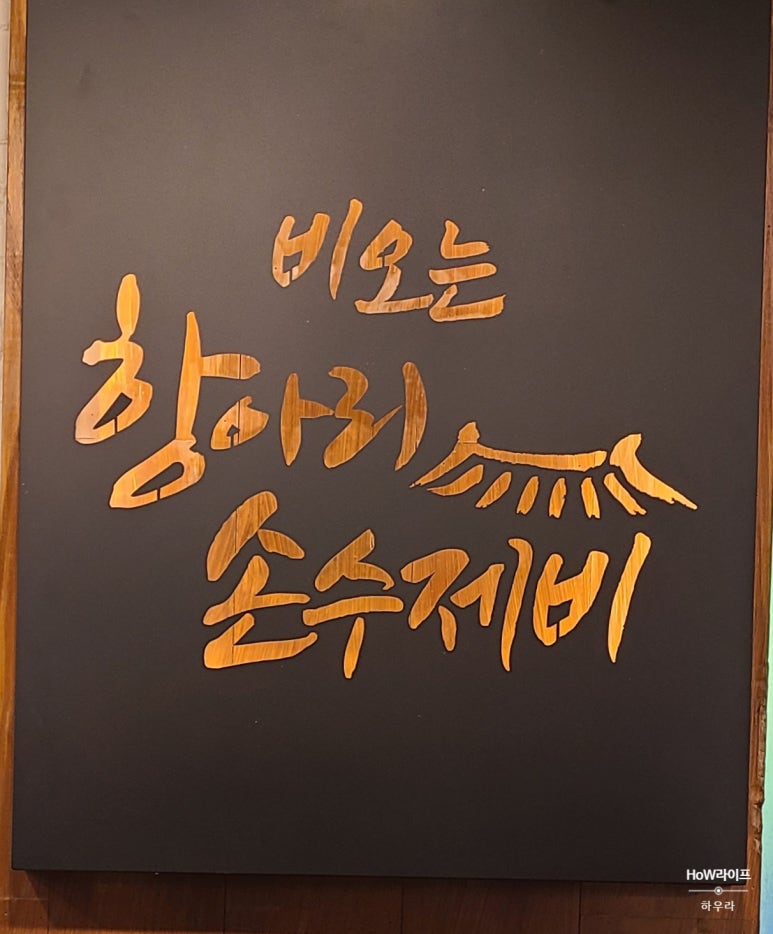 비오는
항아리
손수제비
HoW라이프
하우라